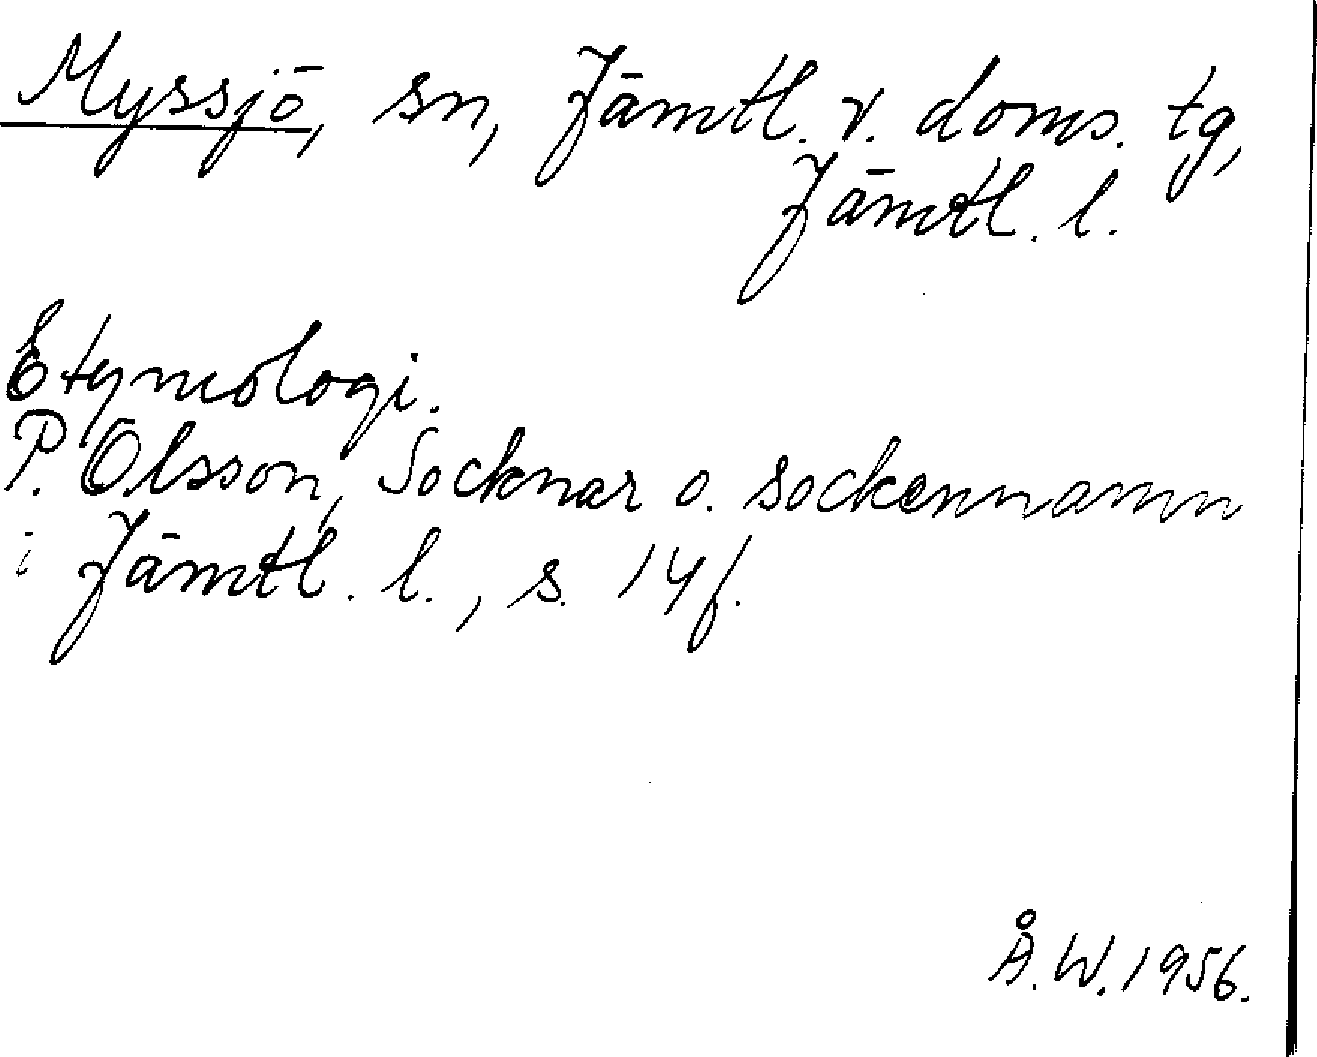 Myssjö, sn, Jämtl. v. doms. tg,
Jämtl. l.
Etymologi.
P. Olsson, Socknar o. sockennamn
i Jämtl. l., s. 14 f.
Å. W. 1956.